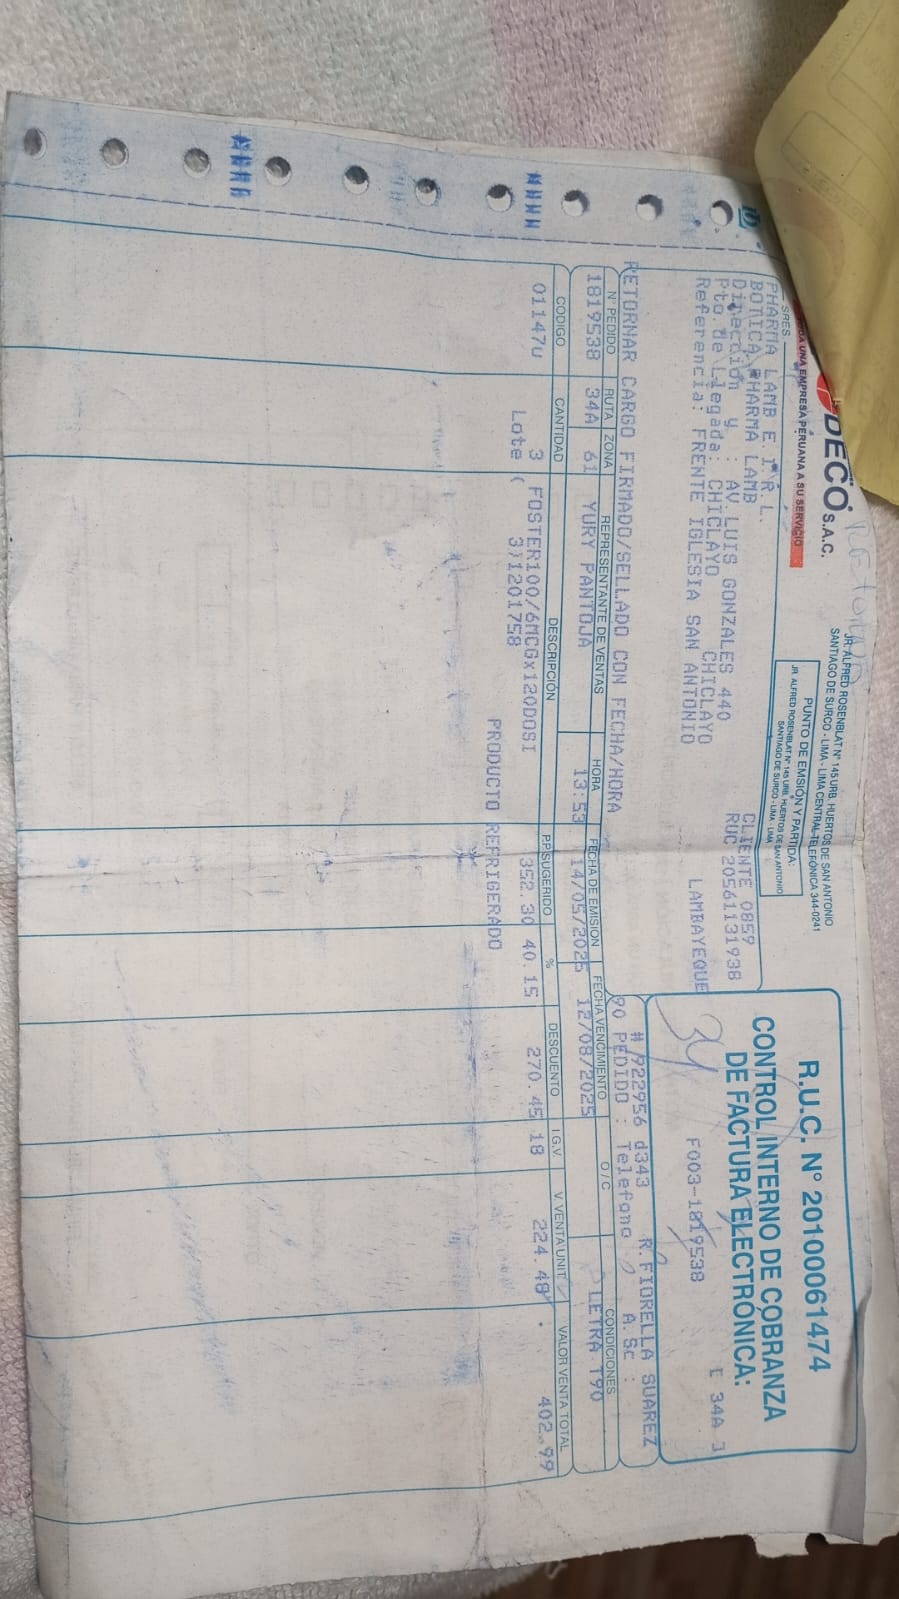 DECO S.A.C.
UNA EMPRESA PERUANA A SU SERVICIO
JR. ALFRED ROSENBLAT N° 145 URB. HUERTOS DE SAN ANTONIO
SANTIAGO DE SURCO - LIMA - LIMA CENTRAL TELEFÓNICA 344-0241
PUNTO DE EMISIÓN Y PARTIDA:
JR. ALFRED ROSENBLAT N° 145 URB. HUERTOS DE SAN ANTONIO
SANTIAGO DE SURCO - LIMA - LIMA
R.U.C. N° 20100061474
CONTROL INTERNO DE COBRANZA
DE FACTURA ELECTRÓNICA:
[ 34A ]
F003-1819538
34
SRES.
PHARMA LAMB E.I.R.L. CLIENTE 0859
BOTICA PHARMA LAMB RUC 20561131938
Dirección y : AV LUIS GONZALES 440
Pto de Llegada: CHICLAYO CHICLAYO LAMBAYEQUE
Referencia: FRENTE IGLESIA SAN ANTONIO
# 922956 d343 R.FIORELLA SUAREZ
RETORNAR CARGO FIRMADO/SELLADO CON FECHA/HORA 90 PEDIDO : Telefono A.Sc :
N° PEDIDO RUTA ZONA REPRESENTANTE DE VENTAS HORA FECHA DE EMISION FECHA VENCIMIENTO O/C CONDICIONES
1819538 34A 61 YURY PANTOJA 13:53 14/05/2025 12/08/2025 LETRA 190
CODIGO CANTIDAD DESCRIPCIÓN P.P.SUGERIDO % DESCUENTO I.G.V. V. VENTA UNIT. VALOR VENTA TOTAL
01147u 3 FOSTER100/6MCGx120DOSI 352.30 40.15 270.45 18 224.48 402.99
Lote ( 3)1201758
PRODUCTO REFRIGERADO